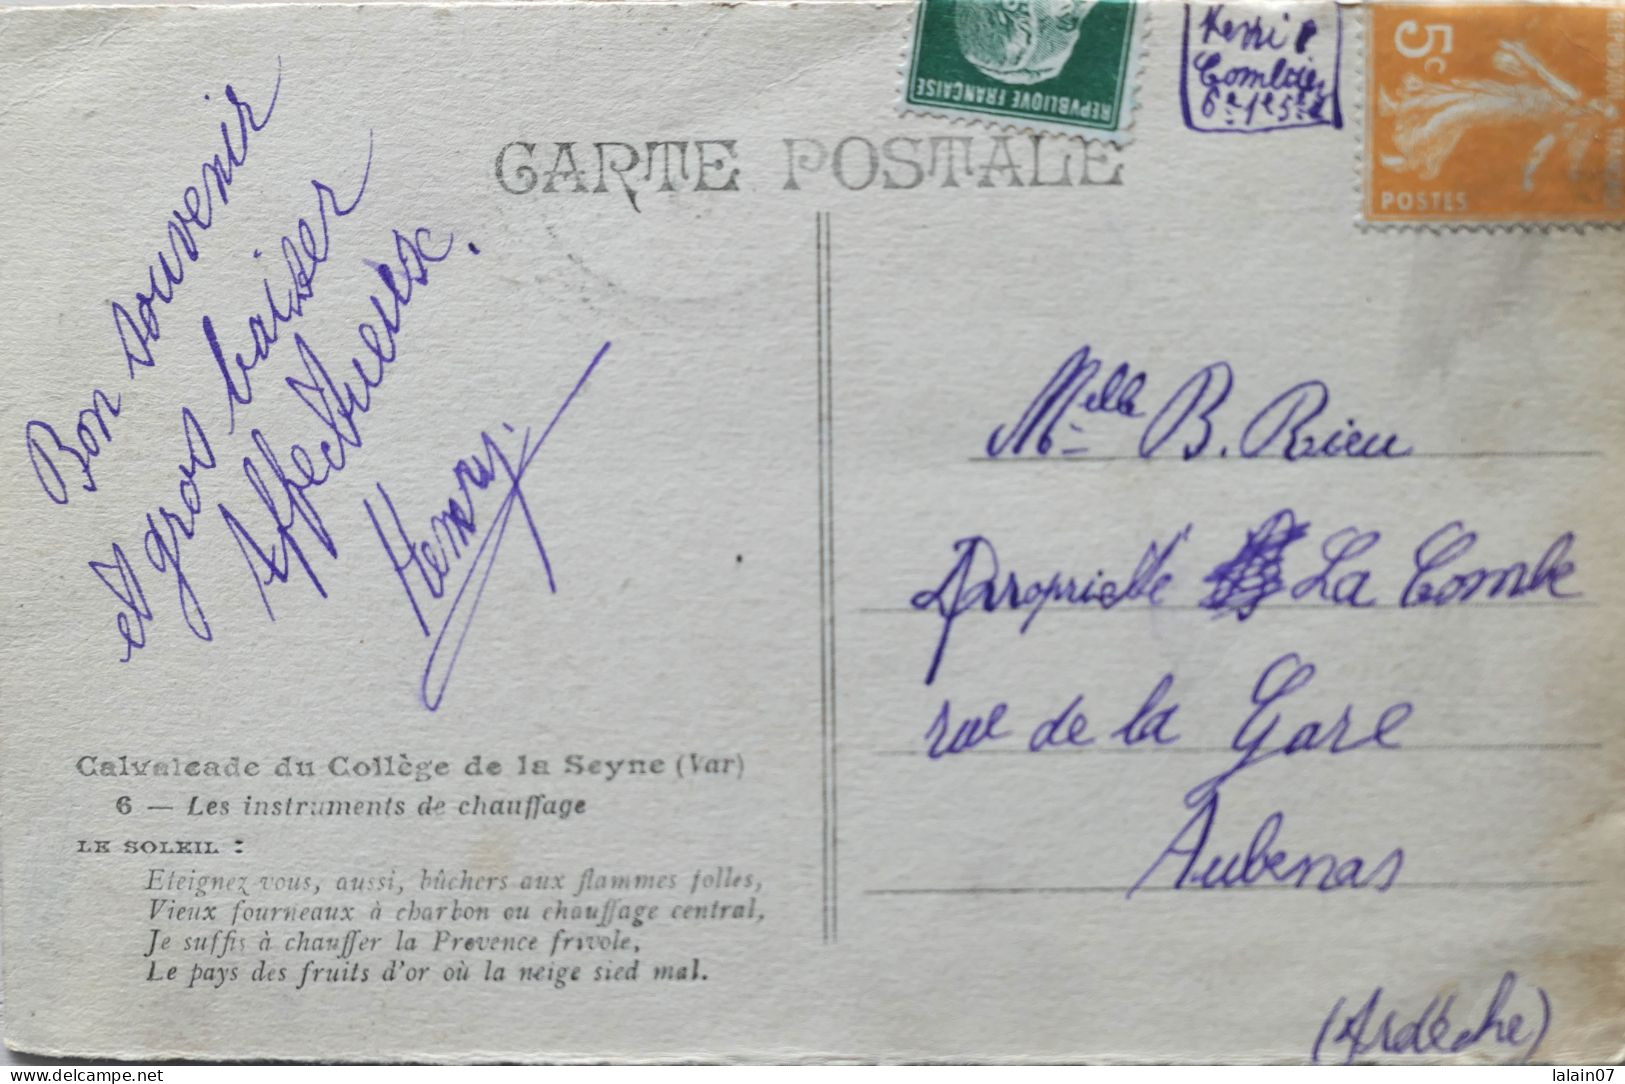 REPVBLIQVE FRANÇAISE
Henri
Combier
5c
POSTES
CARTE POSTALE
Bon souvenir
et gros baiser
Affectueux.
Henry.
Mlle B. Rieu
Propriété La Combe
rue de la Gare
Aubenas
(Ardèche)
Calvalcade du Collège de la Seyne (Var)
6 — Les instruments de chauffage
LE SOLEIL :
Eteignez vous, aussi, bûchers aux flammes folles,
Vieux fourneaux à charbon ou chauffage central,
Je suffis à chauffer la Provence frivole,
Le pays des fruits d'or où la neige sied mal.
www.delcampe.net
lalain07